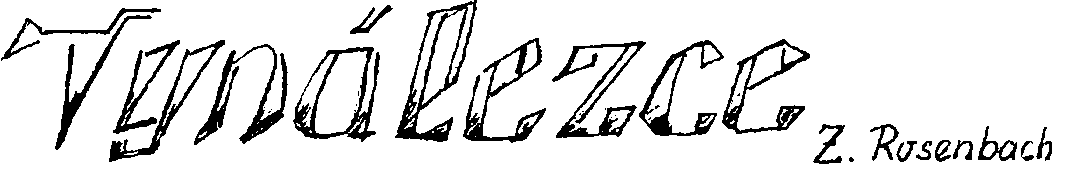 Vynálezce
Z. Rosenbach